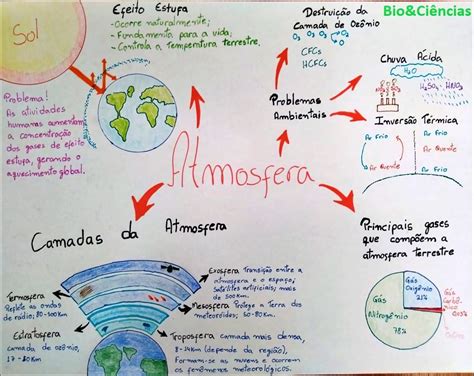 Bio&Ciências
Sol
Efeito Estufa
- Ocorre naturalmente;
- Fundamenta para a vida;
- Controla a Temperatura terrestre.
Problema!
As atividades
humanas aumentam
a concentração
dos gases de efeito
estufa, gerando o
aquecimento global.
Destruição da
Camada de Ozônio
O3
CFCs
HCFCs
Problemas
Ambientais
Chuva Ácida
H2O
H2SO4
HNO3
Inversão Térmica
Ar Frio
Ar Frio
Ar Frio
Ar Quente
Ar Quente
Atmosfera
Camadas da Atmosfera
Exosfera Transição entre a
atmosfera e o espaço,
Satélites artificiais; mais
de 500km.
Termosfera
Reflete as ondas
de rádio; 80-500km
Mesosfera Protege a Terra dos
meteoroides; 50-80km.
Estratosfera
Camada de ozônio,
17-50km
Troposfera camada mais densa,
(depende da região),
Formam-se as nuvens e ocorrem
os fenômenos meteorológicos.
Principais gases
que compõem a
atmosfera terrestre
Gás
Oxigênio
21%
Gás
Nitrogênio
78%
Gás